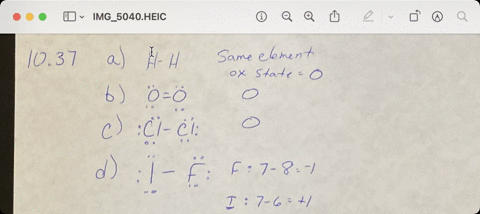 IMG_5040.HEIC
10.37 a) H-H Same element
ox state = 0
b) O=O 0
c) :Cl-Cl: 0
d) :I-F: F: 7-8=-1
I: 7-6=+1